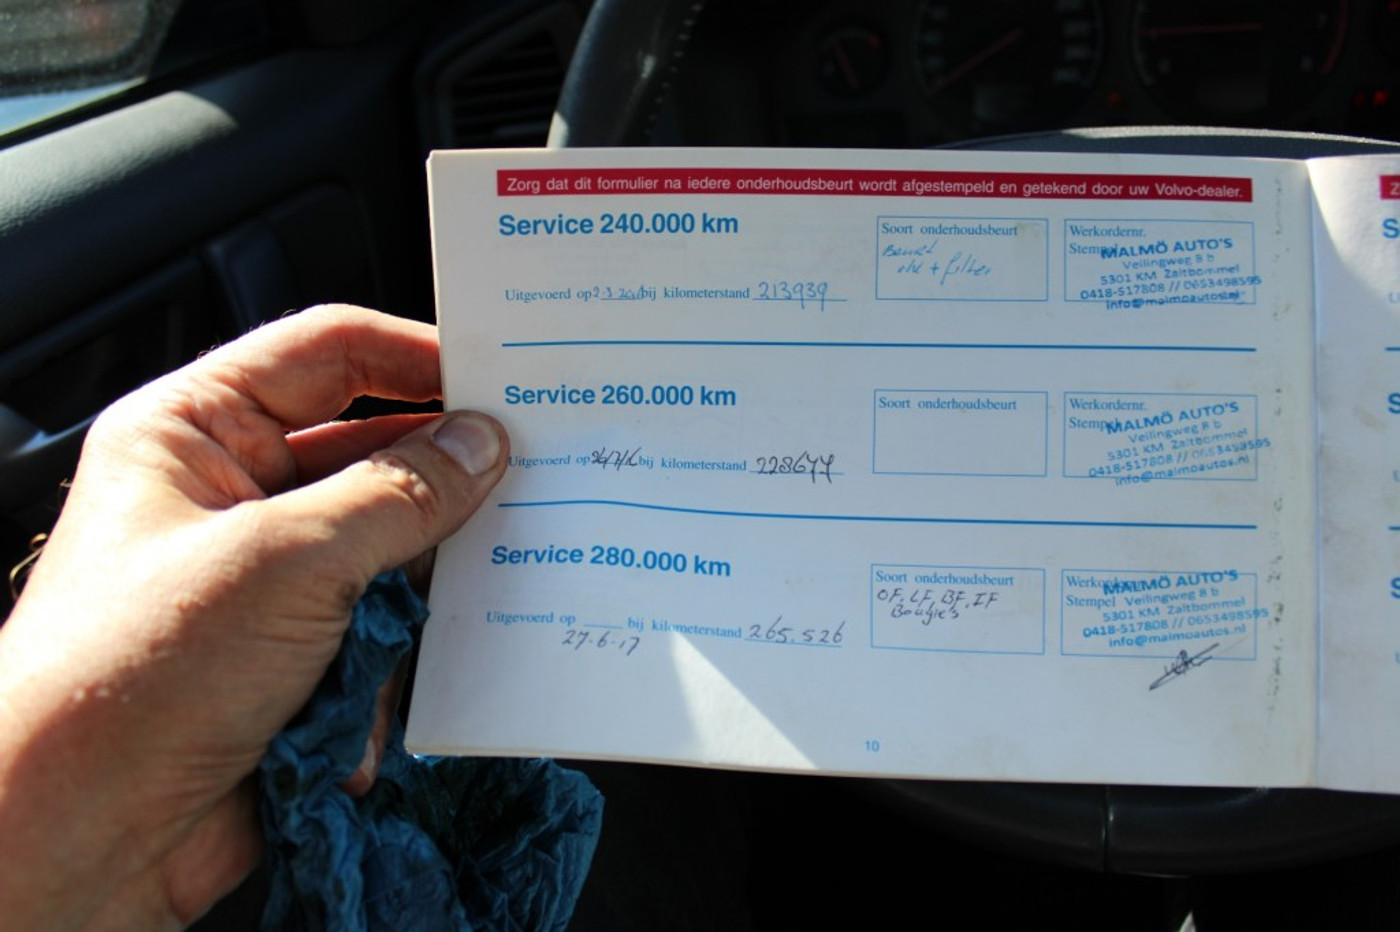 Zorg dat dit formulier na iedere onderhoudsbeurt wordt afgestempeld en getekend door uw Volvo-dealer.
Service 240.000 km
Uitgevoerd op 2-3 bij kilometerstand 213939
Soort onderhoudsbeurt
Beurt
olie + filter
Werkordernr.
Stempel
MALMÖ AUTO'S
Veilingweg 8 b
5301 KM Zaltbommel
0418-517808 // 0653498595
info@malmoautos.nl
Service 260.000 km
Uitgevoerd op bij kilometerstand 228677
Soort onderhoudsbeurt
Werkordernr.
Stempel
MALMÖ AUTO'S
Veilingweg 8 b
5301 KM Zaltbommel
0418-517808 // 0653498595
info@malmoautos.nl
Service 280.000 km
Uitgevoerd op bij kilometerstand 265.526
27-6-17
Soort onderhoudsbeurt
OF, LF, BF, IF
Bougie's
Werkordernr.
Stempel
MALMÖ AUTO'S
Veilingweg 8 b
5301 KM Zaltbommel
0418-517808 // 0653498595
info@malmoautos.nl
10
Z
S
S
S